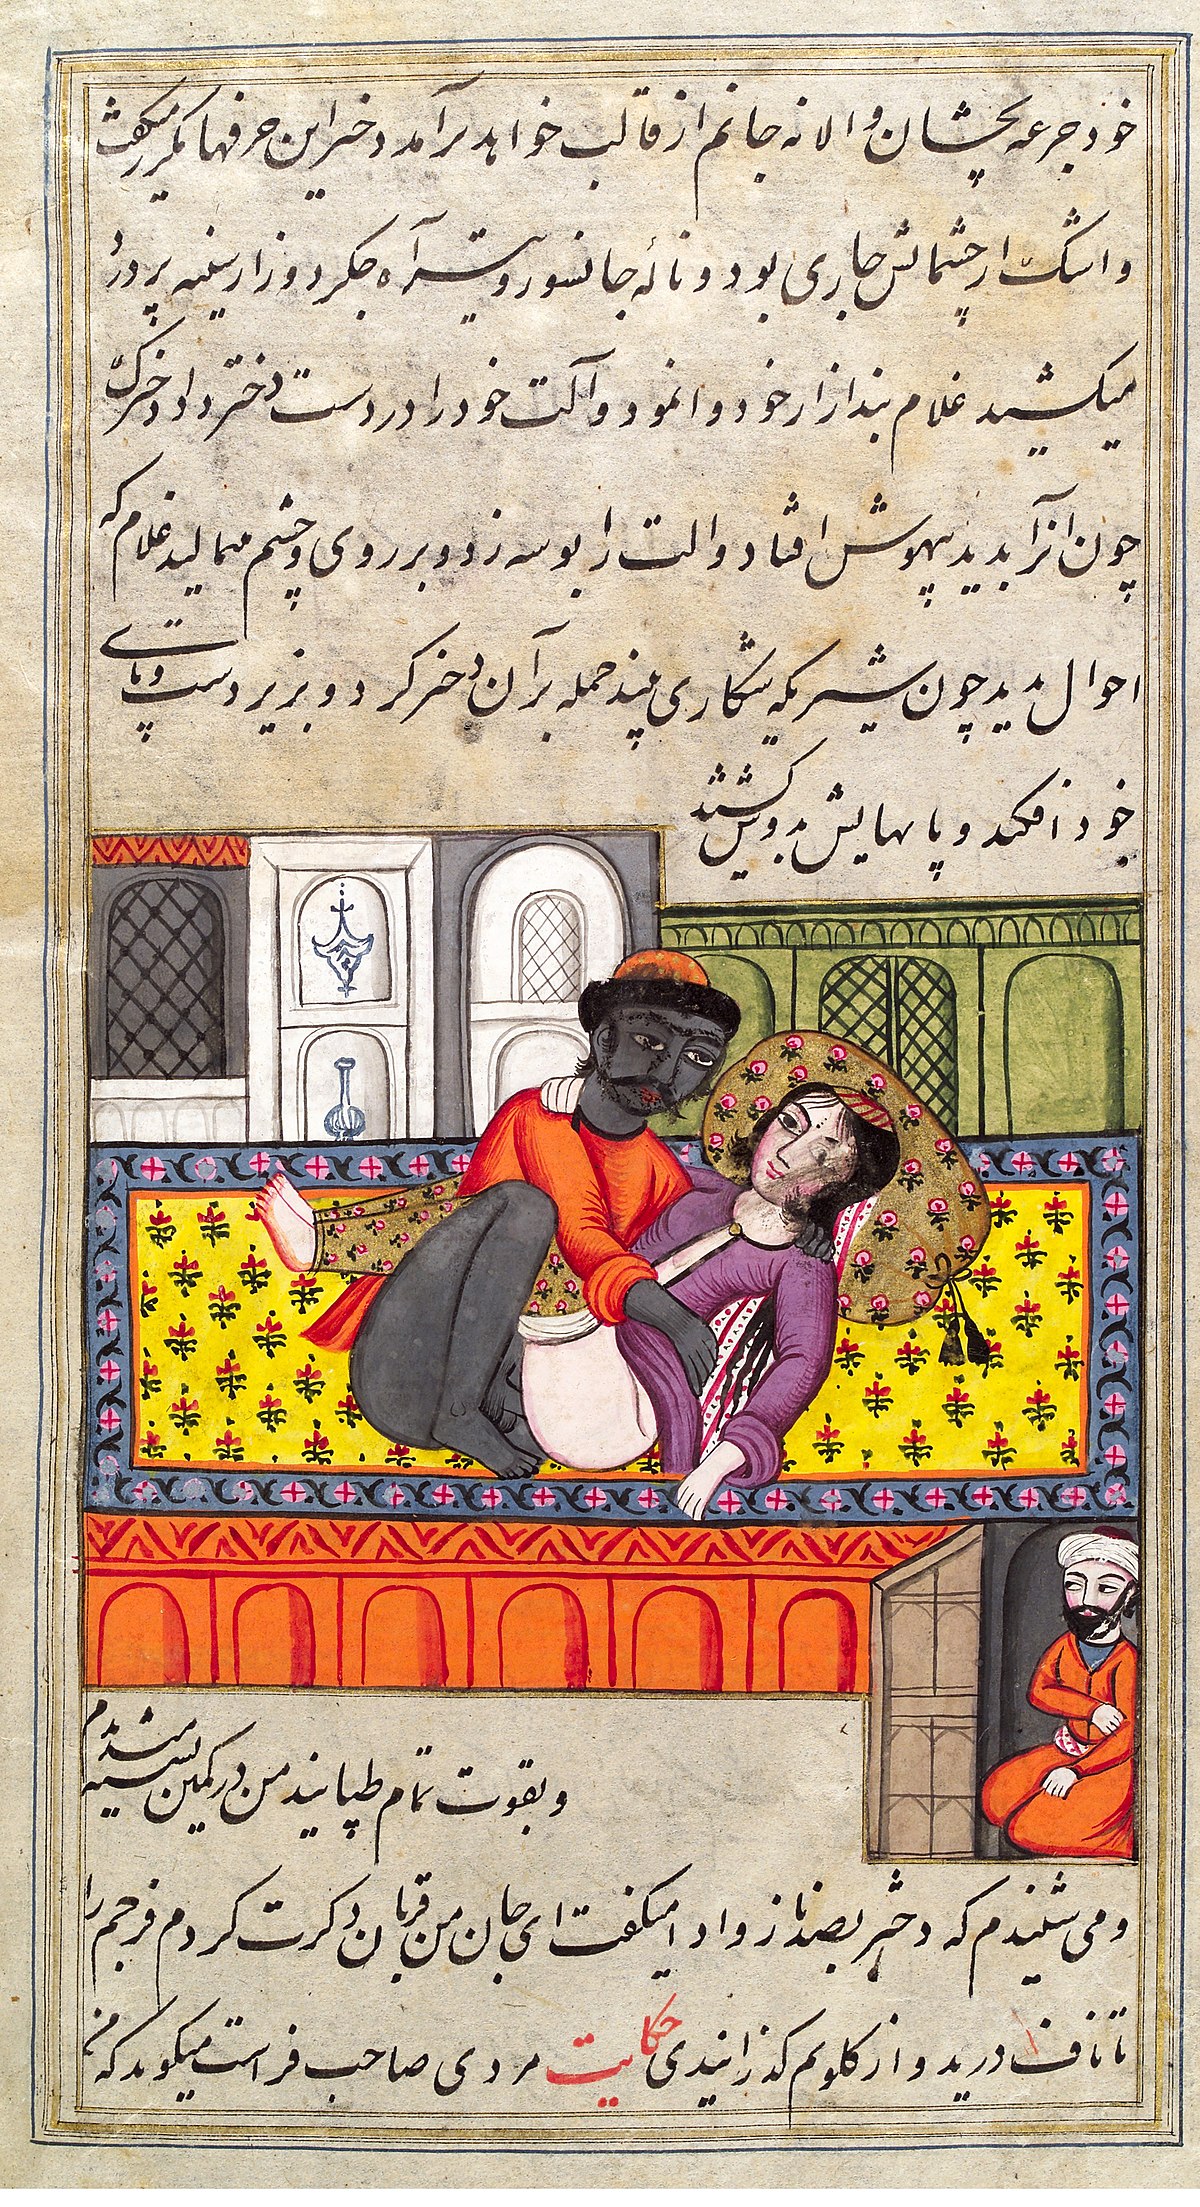 خود جرعه بچشان والا نه جانم از قالب خواهد برآمد دختر این حرفها مکرر میگفت
و اشک از چشمانش جاری بود و ناله جانسوز و تیر آه جگر دوز از سینه پر درد
میکشید غلام بند ازار خود وا نمود و آلت خود را در دست دختر داد دخترک
چون آنرا بدید بیهوش افتاد و الت را بوسه زد و بر روی و چشم میمالید غلام که
احوال بدید چون شیریکه شکاری بیند حمله بر آن دختر کرد و بزیر دست و پای
خود افکند و پاهایش بدوش کشید
و بقوت تمام طپانید من در کمین نشسته میدیدم
و می شنیدم که دختر بصد ناز و ادا میگفت ای جان من قربان کرت کردم فرجم را
تا ناف درید و از گلویم گذرانیدی حکایت مردی صاحب فراست میگوید که